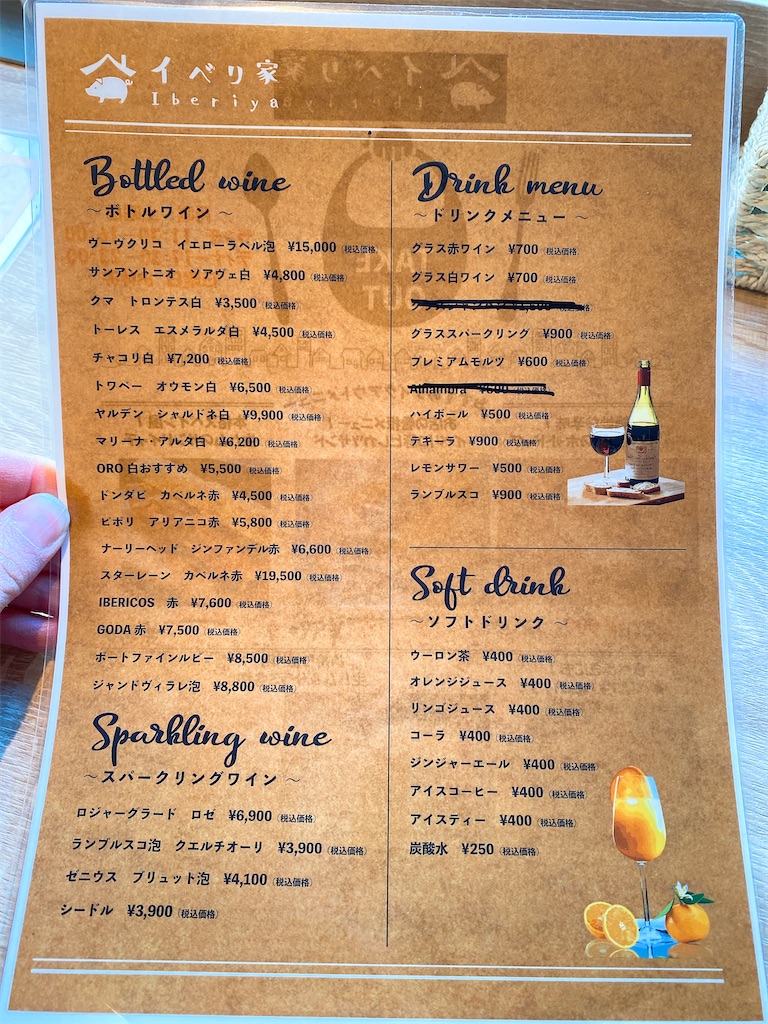 イベリ家
Iberiya
Bottled wine
〜ボトルワイン 〜
ヴーヴクリコ イエローラベル泡 ¥15,000（税込価格）
サンアントニオ ソアヴェ白 ¥4,800（税込価格）
クマ トロンテス白 ¥3,500（税込価格）
トーレス エスメラルダ白 ¥4,500（税込価格）
チャコリ白 ¥7,200（税込価格）
トワベー オウモン白 ¥6,500（税込価格）
ヤルデン シャルドネ白 ¥9,900（税込価格）
マリーナ・アルタ白 ¥6,200（税込価格）
ORO 白おすすめ ¥5,500（税込価格）
ドンダビ カベルネ赤 ¥4,500（税込価格）
ピポリ アリアニコ赤 ¥5,800（税込価格）
ナーリーヘッド ジンファンデル赤 ¥6,600（税込価格）
スターレーン カベルネ赤 ¥19,500（税込価格）
IBERICOS 赤 ¥7,600（税込価格）
GODA 赤 ¥7,500（税込価格）
ポートファインルビー ¥8,500（税込価格）
ジャンドヴィラレ泡 ¥8,800（税込価格）
Sparkling wine
〜スパークリングワイン 〜
ロジャーグラード ロゼ ¥6,900（税込価格）
ランブルスコ泡 クエルチオーリ ¥3,900（税込価格）
ゼニウス ブリュット泡 ¥4,100（税込価格）
シードル ¥3,900（税込価格）
Drink menu
〜ドリンクメニュー 〜
グラス赤ワイン ¥700（税込価格）
グラス白ワイン ¥700（税込価格）
グラススパークリング ¥900（税込価格）
プレミアムモルツ ¥600（税込価格）
Alhambra ¥600（税込価格）
ハイボール ¥500（税込価格）
テキーラ ¥900（税込価格）
レモンサワー ¥500（税込価格）
ランブルスコ ¥900（税込価格）
Soft drink
〜ソフトドリンク 〜
ウーロン茶 ¥400（税込価格）
オレンジジュース ¥400（税込価格）
リンゴジュース ¥400（税込価格）
コーラ ¥400（税込価格）
ジンジャーエール ¥400（税込価格）
アイスコーヒー ¥400（税込価格）
アイスティー ¥400（税込価格）
炭酸水 ¥250（税込価格）